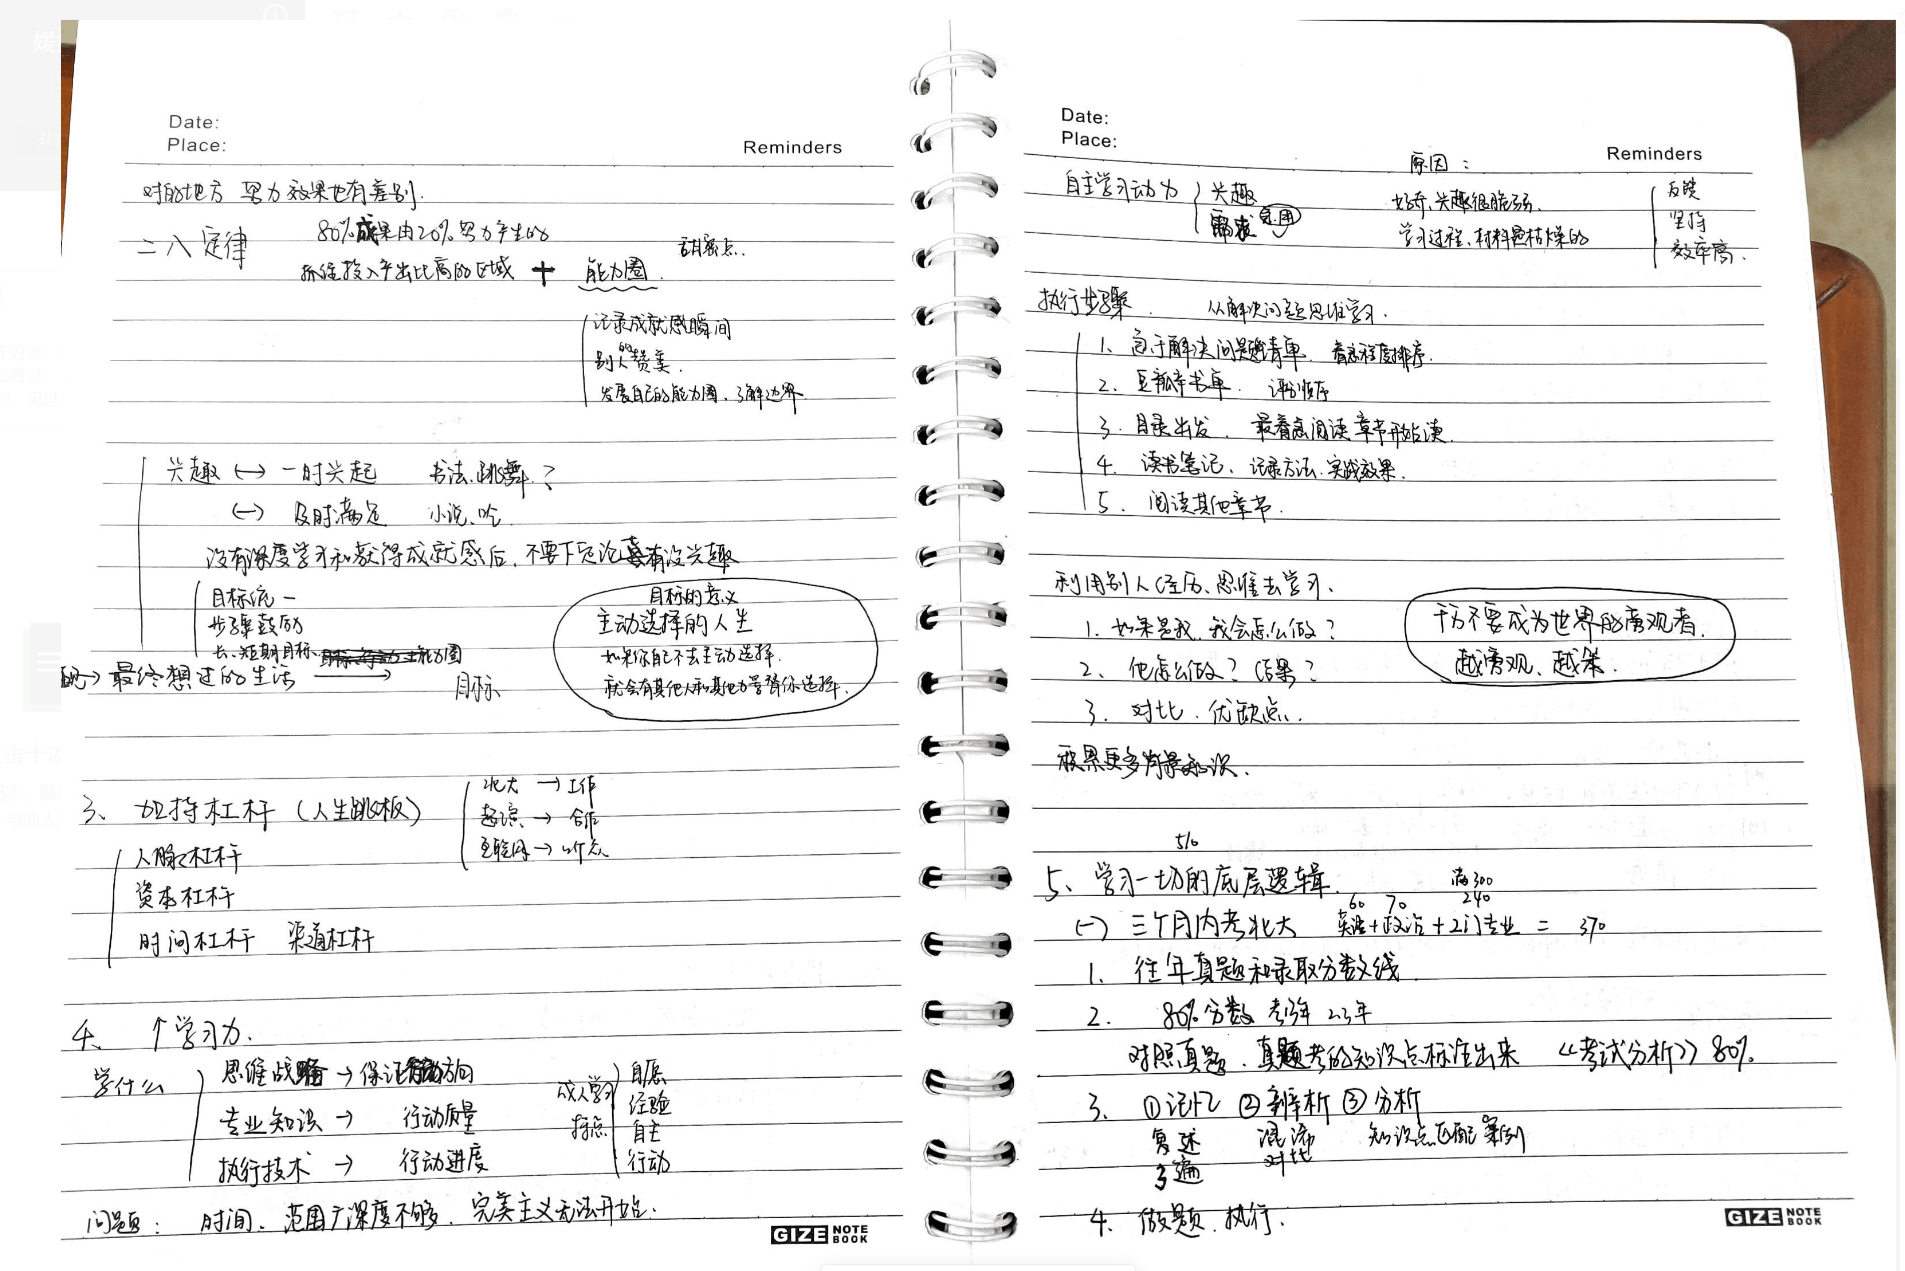 Date:
Place:
Reminders
对的地方 努力效果也有差别.
二八定律
80%成果由20%努力产生的
抓住投入产出比高的区域 + 能力圈.
记录成就感瞬间
别人的赞美.
发展自己的能力圈、了解边界
兴趣 ↔ 一时兴起 书法、跳舞?
↔ 及时满足 小说、吃
没有深度学习和获得成就感后, 不要下定论有没兴趣
目标统一
步骤鼓励
长、短期目标、
→ 最终想过的生活 → 目标
目标的意义
主动选择的人生
如果你自己不去主动选择.
就会有其他人和其他力量替你选择.
3、加持杠杆 (人生跳板)
北大 → 工作
→ 合作
互联网 → 听众
人脉杠杆
资本杠杆
时间杠杆 渠道杠杆
4、↑学习力.
学什么
思维战略 → 保证行动方向
专业知识 → 行动质量
执行技术 → 行动进度
成人学习特点
自愿
经验
自主
行动
问题: 时间、范围广深度不够、完美主义无法开始.
GIZE NOTE BOOK
Date:
Place:
Reminders
自主学习动力
兴趣
需求 急用
原因:
好奇、兴趣很脆弱.
学习过程、材料是枯燥的
反馈
坚持
效率高.
执行步骤. 从解决问题思维学习.
1. 急于解决问题清单. 着急程度排序.
2. 豆瓣书单. 评分顺序
3. 目录出发. 最着急阅读章节开始读.
4. 读书笔记、记录方法、实践效果.
5. 阅读其他章节.
利用别人经历、思维去学习.
1. 如果是我, 我会怎么做?
2. 他怎么做? 结果?
3. 对比、优缺点.
千万不要成为世界的旁观者.
越旁观、越笨.
积累更多背景知识.
5、学习一切的底层逻辑.
(一) 三个月内考北大
满300
60 70 240
英语+政治+2门专业 = 370
1. 往年真题和录取分数线.
2. 80%分数 考3年 2.3年
对照真题、真题考的知识点标注出来 《考试分析》80%
3. ①记忆 ②辨析 ③分析
复述 混淆 知识点匹配案例
3遍 对比
4. 做题、执行.
GIZE NOTE BOOK